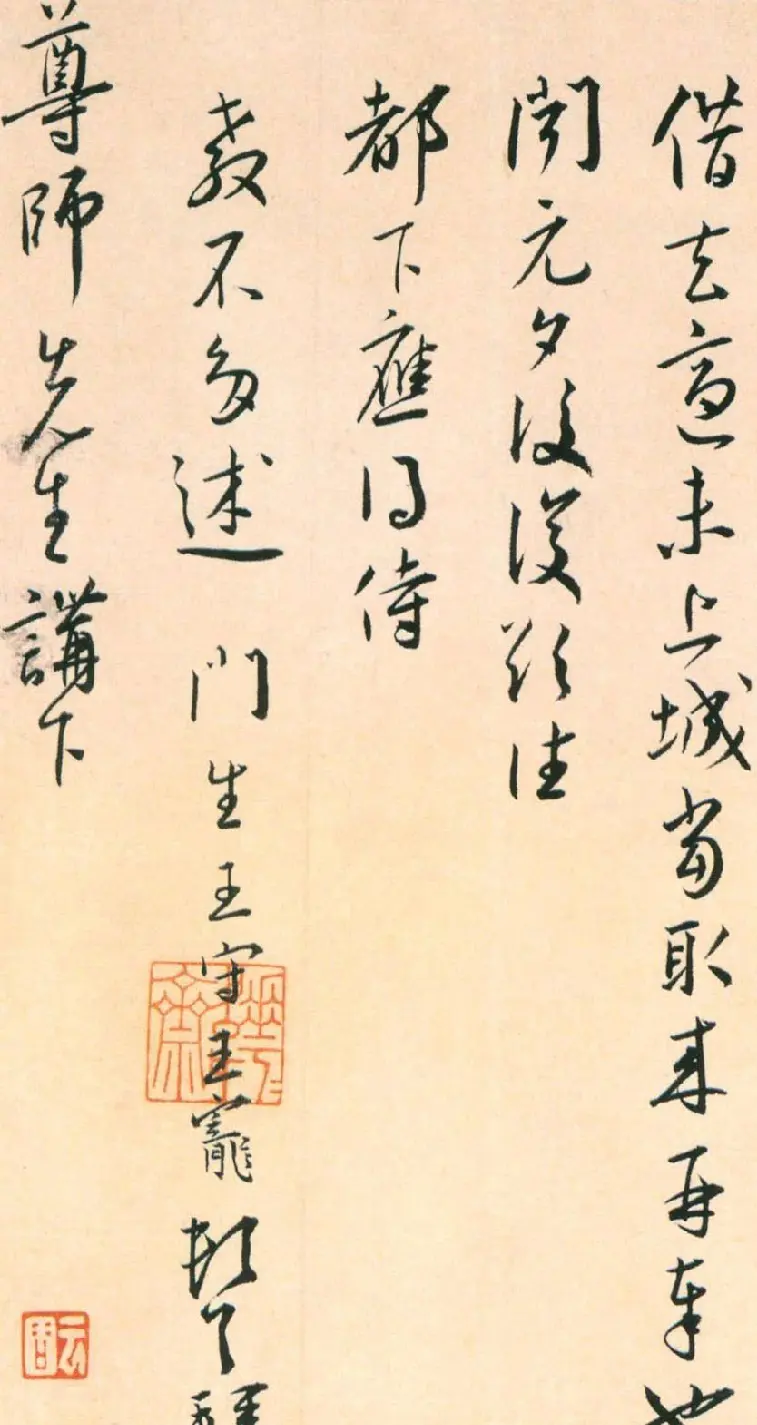 借去適未上城當取來再奉也
聞元夕後後欵往
都下應得侍
教不多述 門生王守王寵頓首拜
尊師先生講下